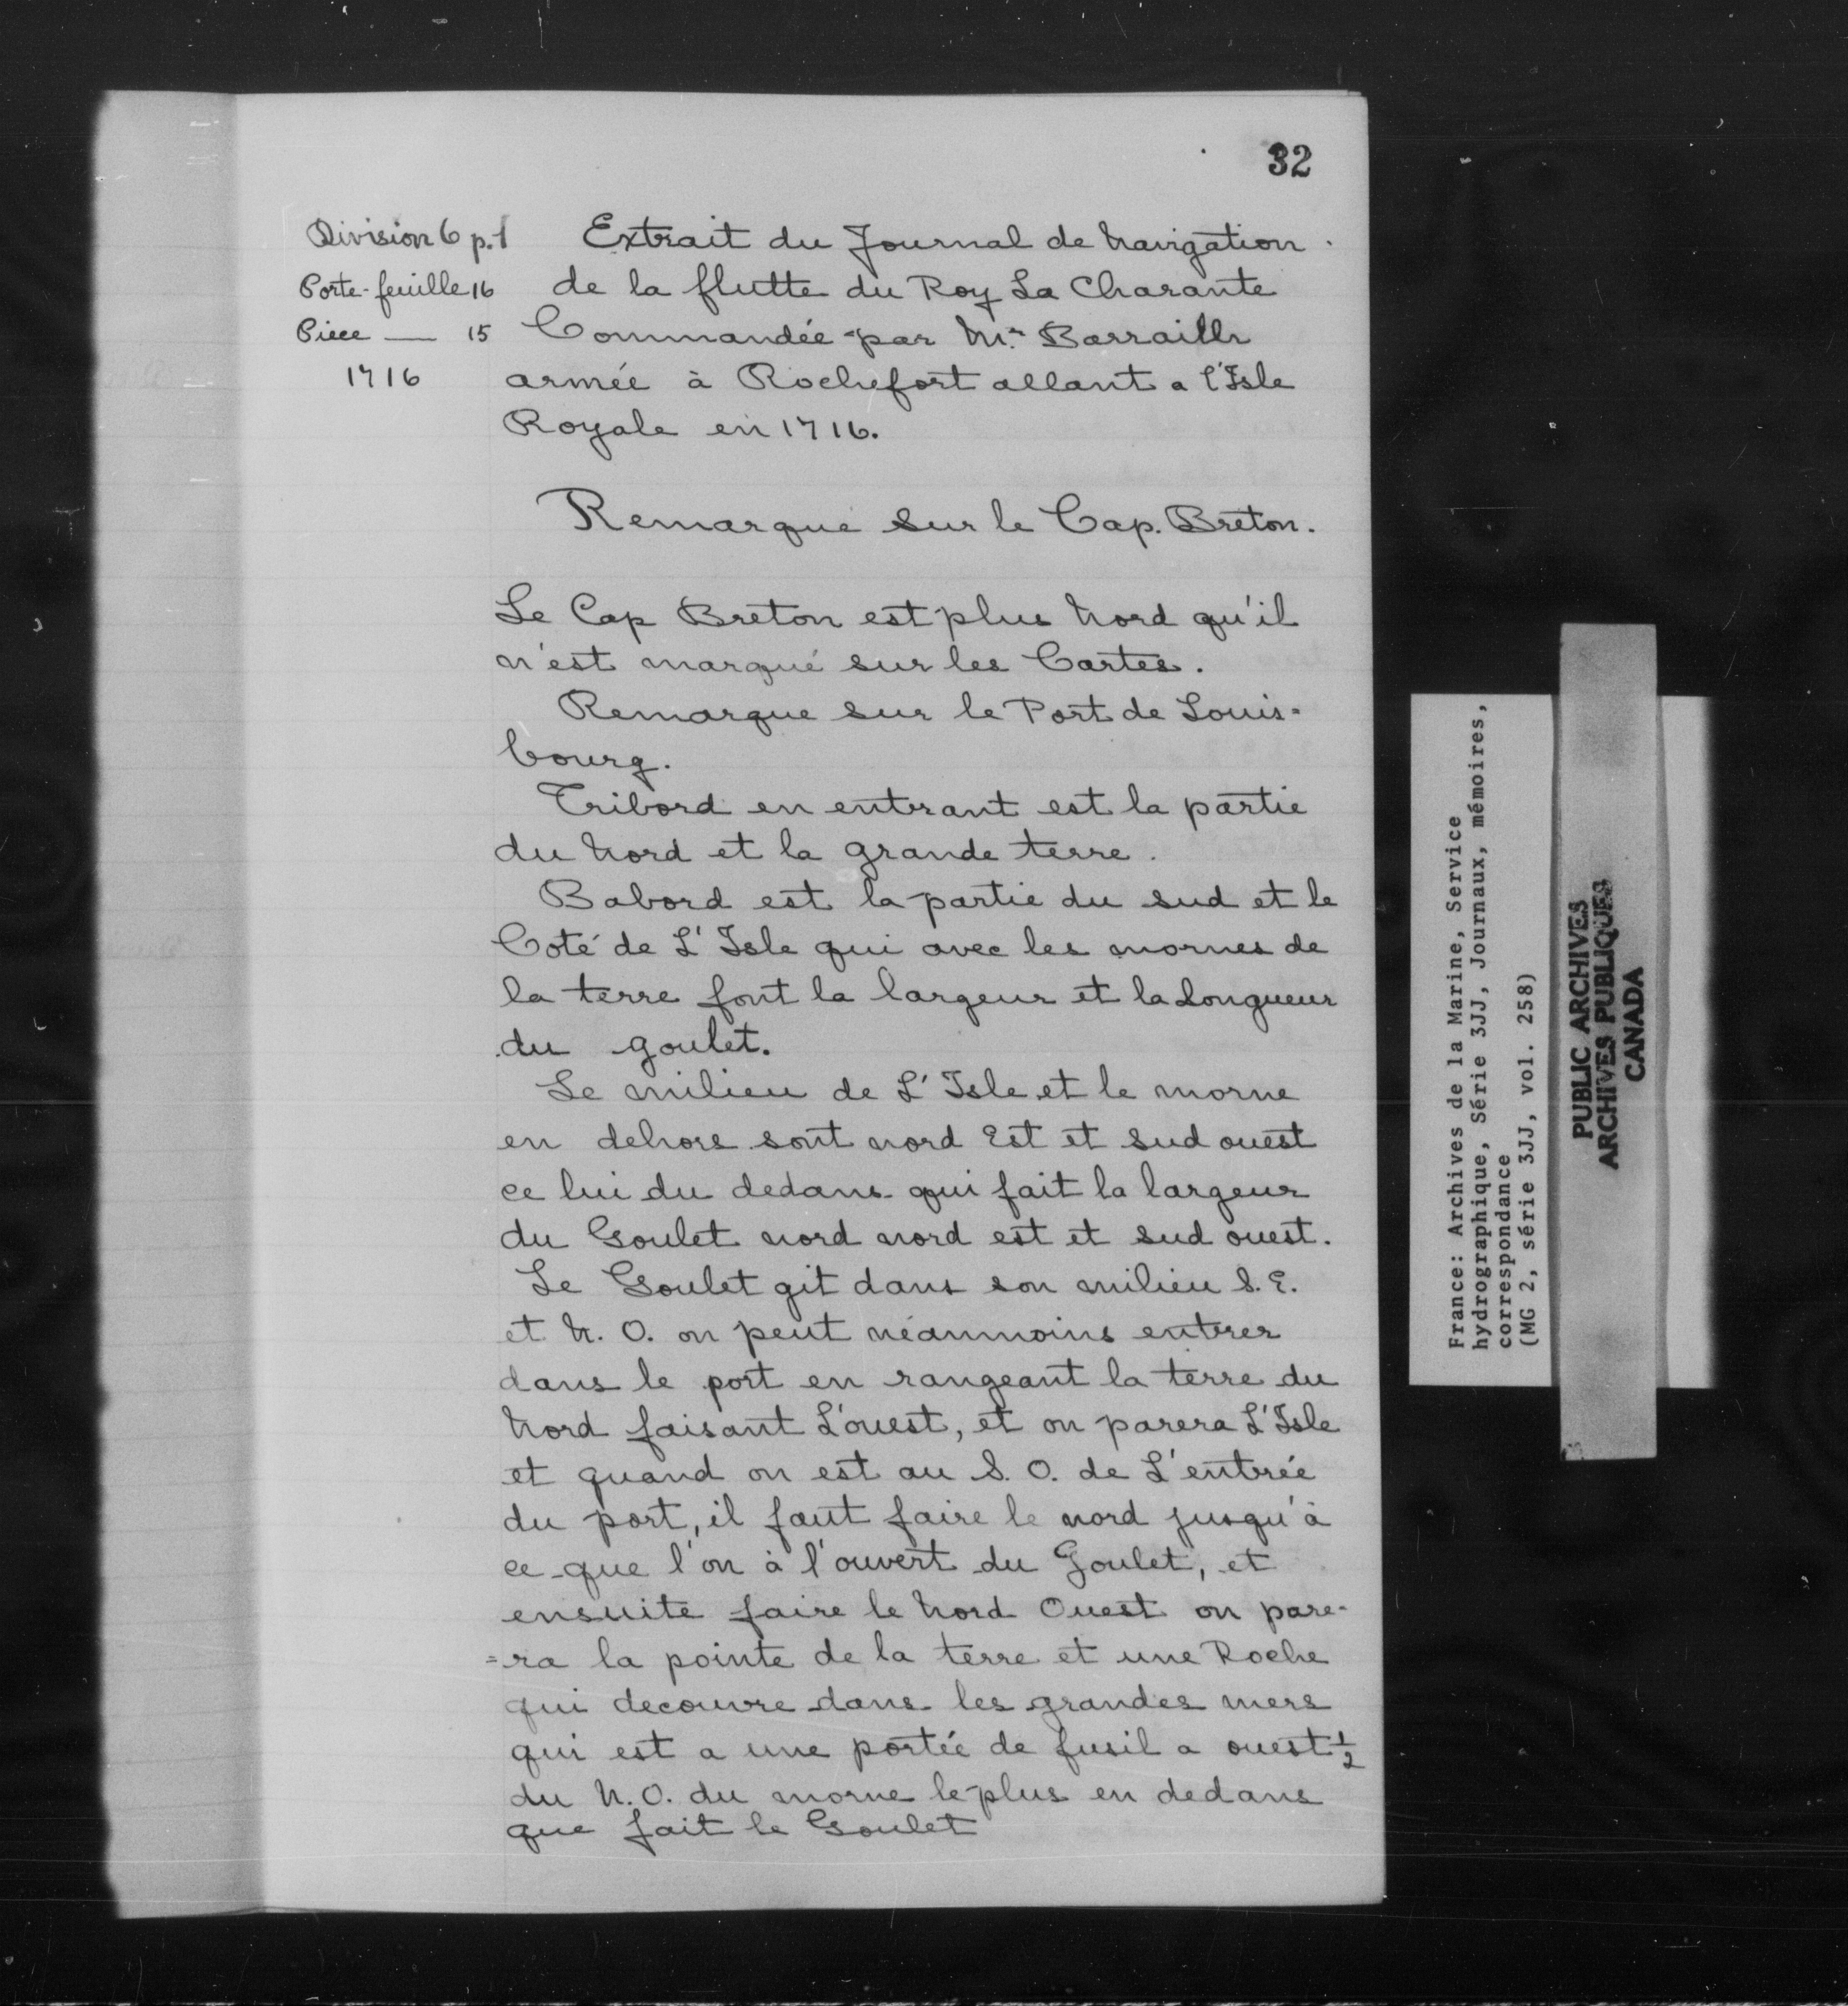 32
Division 6 p. 1
Porte-feuille 16
Piece — 15
1716
Extrait du Journal de Navigation
de la flutte du Roy La Charante
Commandée par Mr. Barrailh
armée à Rochefort allant a l'Isle
Royale en 1716.
Remarque sur le Cap. Breton.
Le Cap Breton est plus Nord qu'il
n'est marqué sur les Cartes.
Remarque sur le Port de Louis-
bourg.
Tribord en entrant est la partie
du Nord et la grande terre.
Babord est la partie du sud et le
Coté de L'Isle qui avec les mornes de
la terre font la largeur et la Longueur
du goulet.
Le milieu de L'Isle et le morne
en dehors sont nord Est et sud ouest
ce lui du dedans qui fait la largeur
du Goulet nord nord est et sud ouest.
Le Goulet git dans son milieu S. E.
et N. O. on peut néanmoins entrer
dans le port en rangeant la terre du
Nord faisant L'ouest, et on parera L'Isle
et quand on est au S. O. de L'entrée
du port, il faut faire le nord jusqu'à
ce que l'on à l'ouvert du Goulet, et
ensuite faire le Nord Ouest on pare-
=ra la pointe de la terre et une Roche
qui decouvre dans les grandes mers
qui est a une portée de fusil a ouest 1/2
du N. O. du morne le plus en dedans
que fait le Goulet
France: Archives de la Marine, Service
hydrographique, Série 3JJ, Journaux, mémoires,
correspondance
(MG 2, série 3JJ, vol. 258)
PUBLIC ARCHIVES
ARCHIVES PUBLIQUES
CANADA